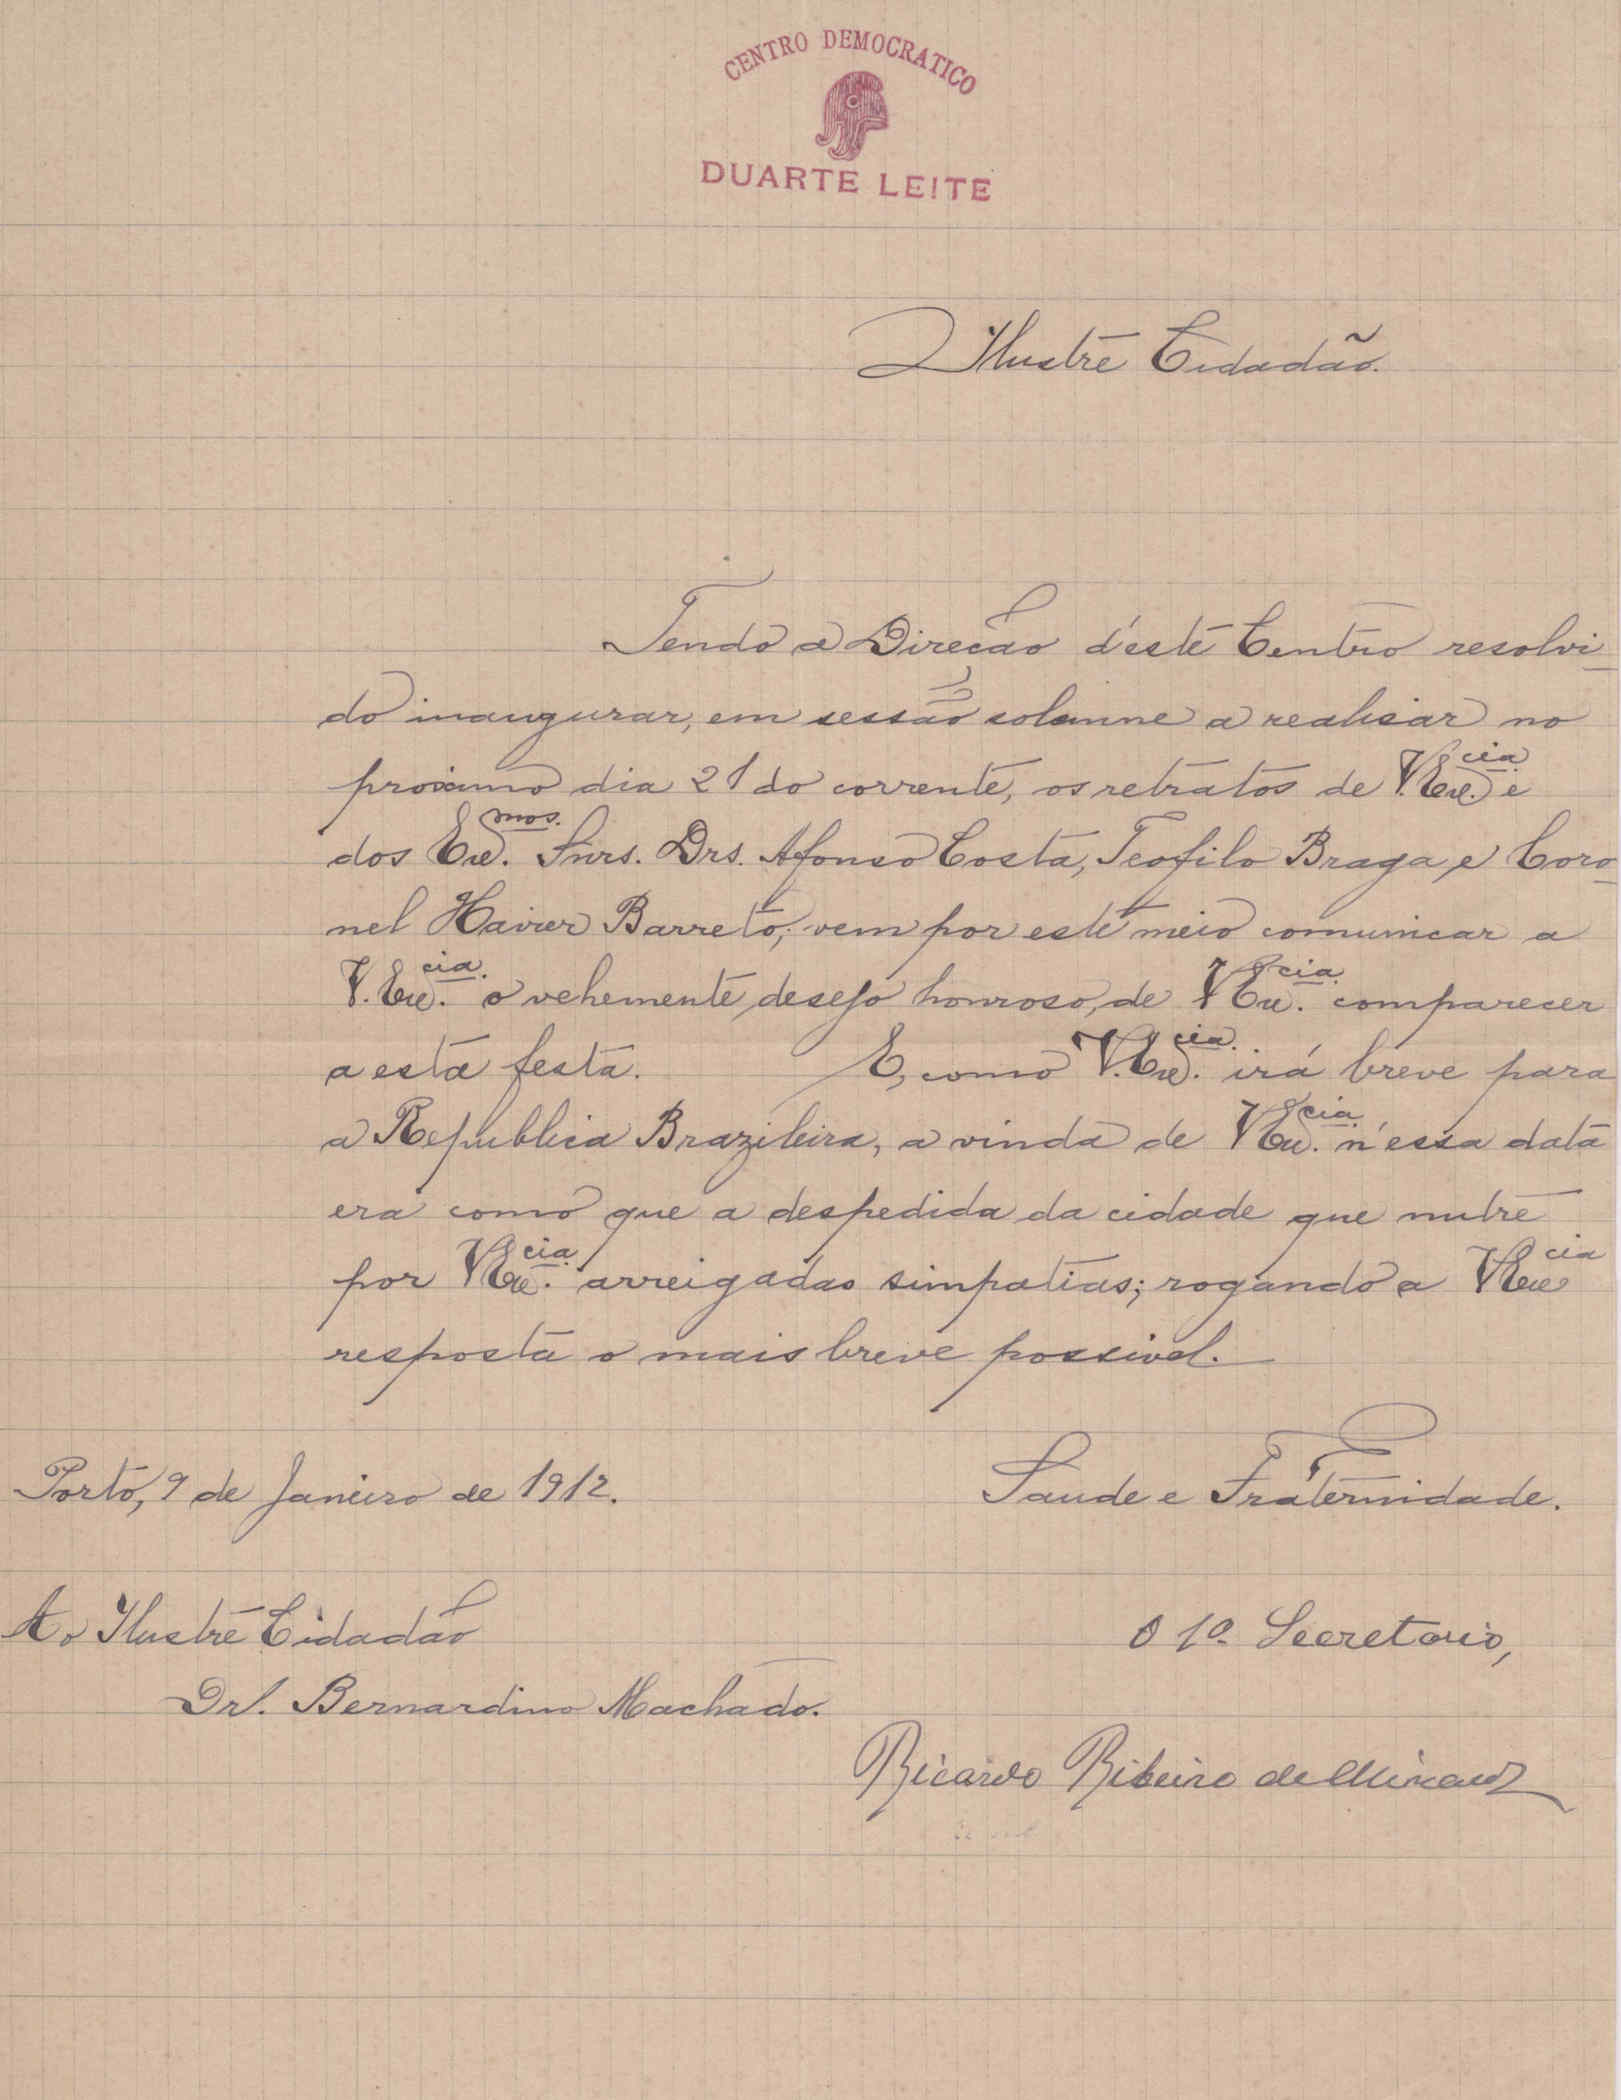 CENTRO DEMOCRATICO
DUARTE LEITE
Ilustre Cidadão.
Tendo a Direcão d'este Centro resolvi-
do inaugurar, em sessão solemne a realisar no
proximo dia 21 do corrente, os retratos de V. Exc.cia e
dos Exc.mos. Snrs. Drs. Afonso Costa, Teofilo Braga e Coro-
nel Xavier Barreto, vem por este meio comunicar a
V. Exc.cia. o vehemente desejo honroso, de V. Exc.cia. comparecer
a esta festa. E, como V. Exc.cia. irá breve para
a Republica Brazileira, a vinda de V. Exc.cia. n'essa data
era como que a despedida da cidade que nutre
por V. Exc.cia. arreigadas simpatias; rogando a V. Exc.cia
resposta o mais breve possivel.
Porto, 9 de Janeiro de 1912. Saude e Fraternidade.
Ao Ilustre Cidadão O 1º. Secretario,
Dr. Bernardino Machado.
Ricardo Ribeiro de